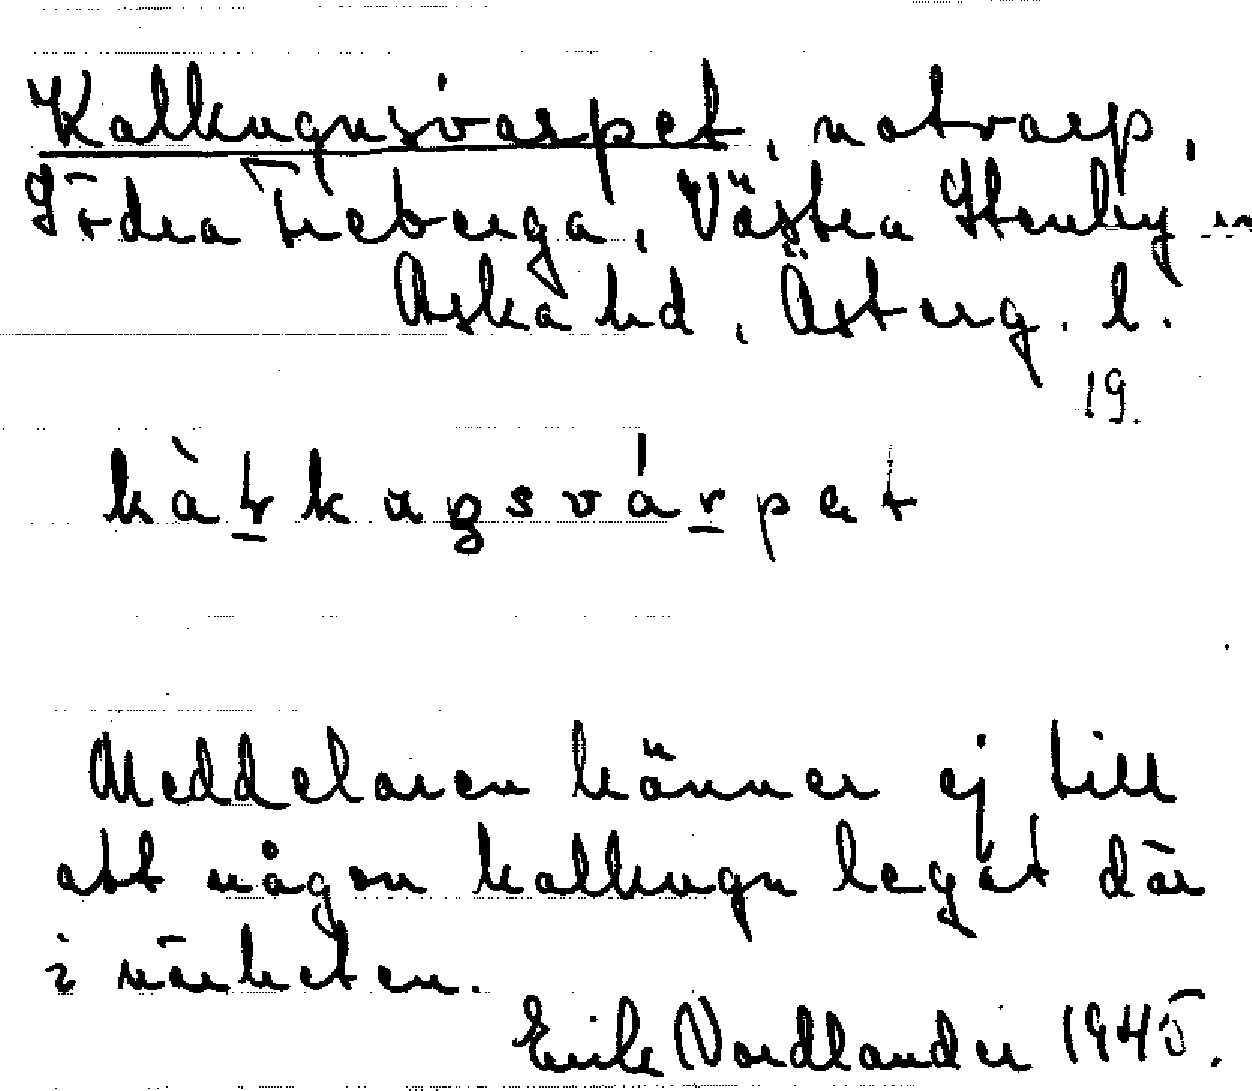 Kalkugnsvarpet, notvarp,
Södra Freberga, Västra Stenby sn
Aska hd, Österg. l.
19.
kàɫkugsvárpet
Meddelaren känner ej till
att någon kalkugn legat där
i närheten.
Erik Nordlander 1945.